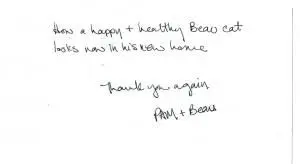 How a happy + healthy Beau cat
looks now in his new home
Thank you again
PAM + Beau